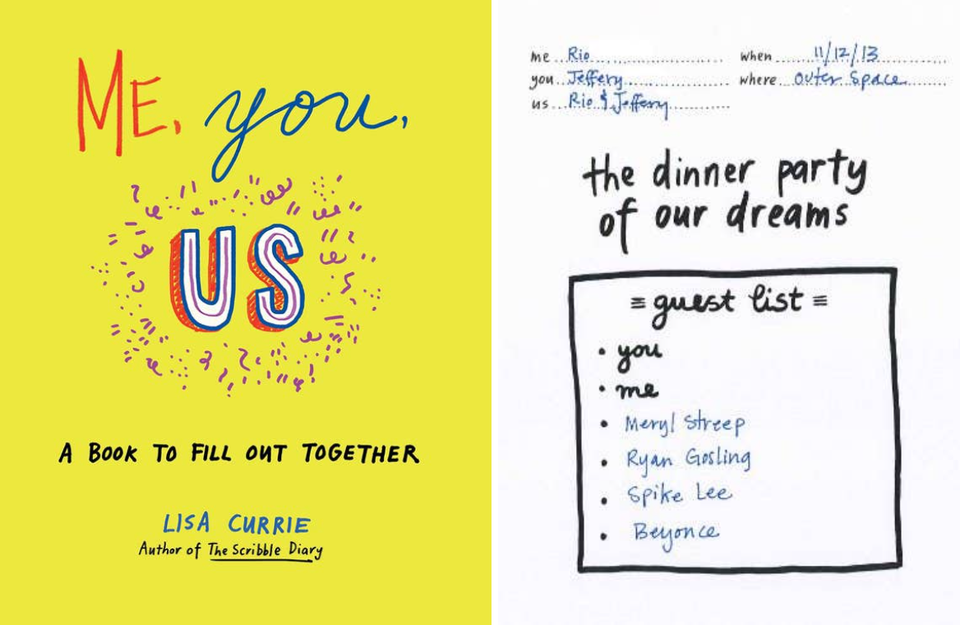 ME, you,
US
A BOOK TO FILL OUT TOGETHER
LISA CURRIE
Author of The Scribble Diary
me Rio
you Jeffery
us Rio & Jeffery
when 11/12/13
where outer space
the dinner party
of our dreams
guest list
• you
• me
• Meryl Streep
• Ryan Gosling
• Spike Lee
• Beyonce